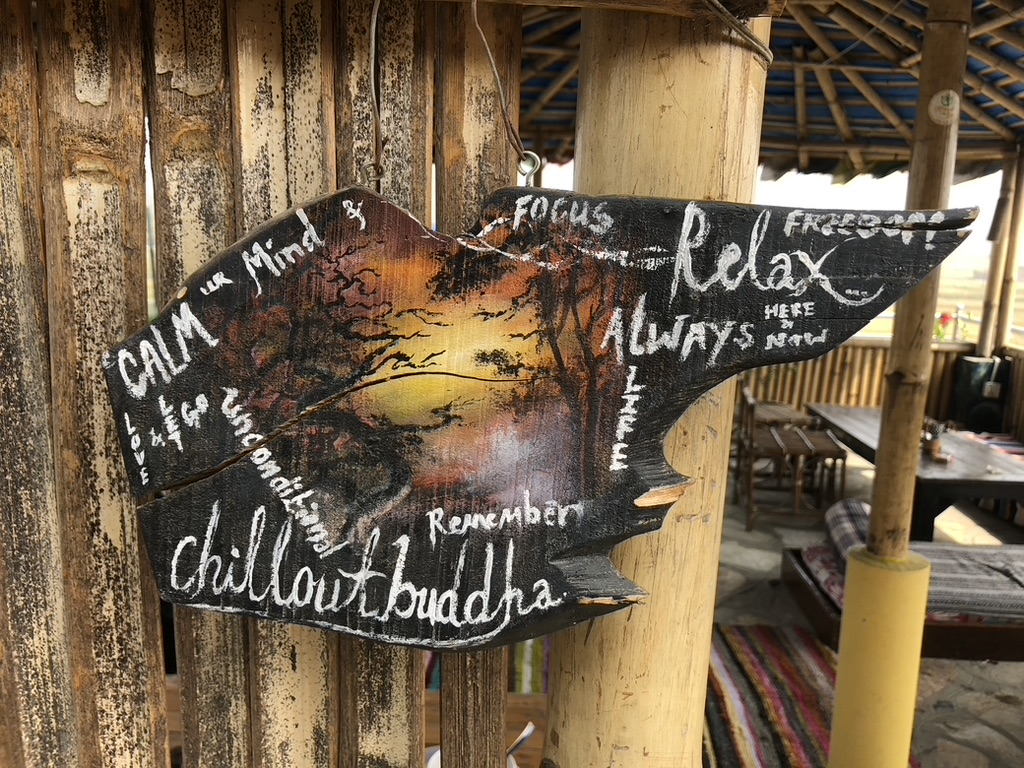 CALM ur Mind &
FOCUS
Relax
FREEDOM
ALWAYS
HERE
&
NOW
LOVE
LET
GO
Unconditional
LIFE
Remember
chillout buddha